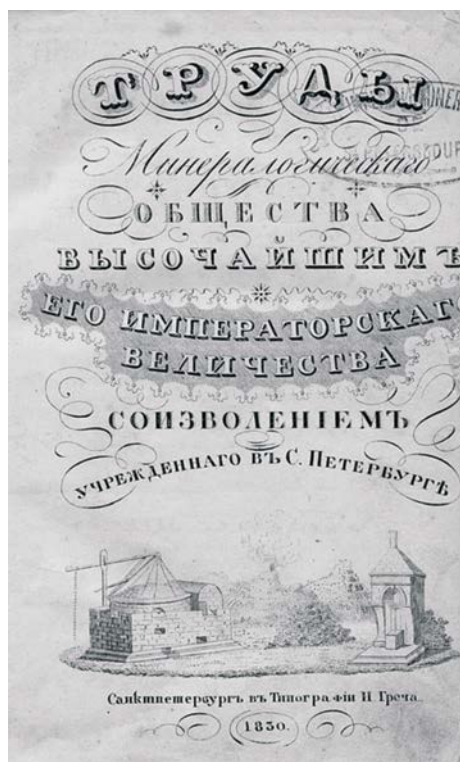 ТРУДЫ
Минералогическаго
ОБЩЕСТВА
ВЫСОЧАЙШИМЪ
ЕГО ИМПЕРАТОРСКАГО
ВЕЛИЧЕСТВА
СОИЗВОЛЕНІЕМЪ
УЧРЕЖДЕННАГО ВЪ С. ПЕТЕРБУРГѢ
Санктпетербургъ въ Типографіи Н. Греча.
1830.